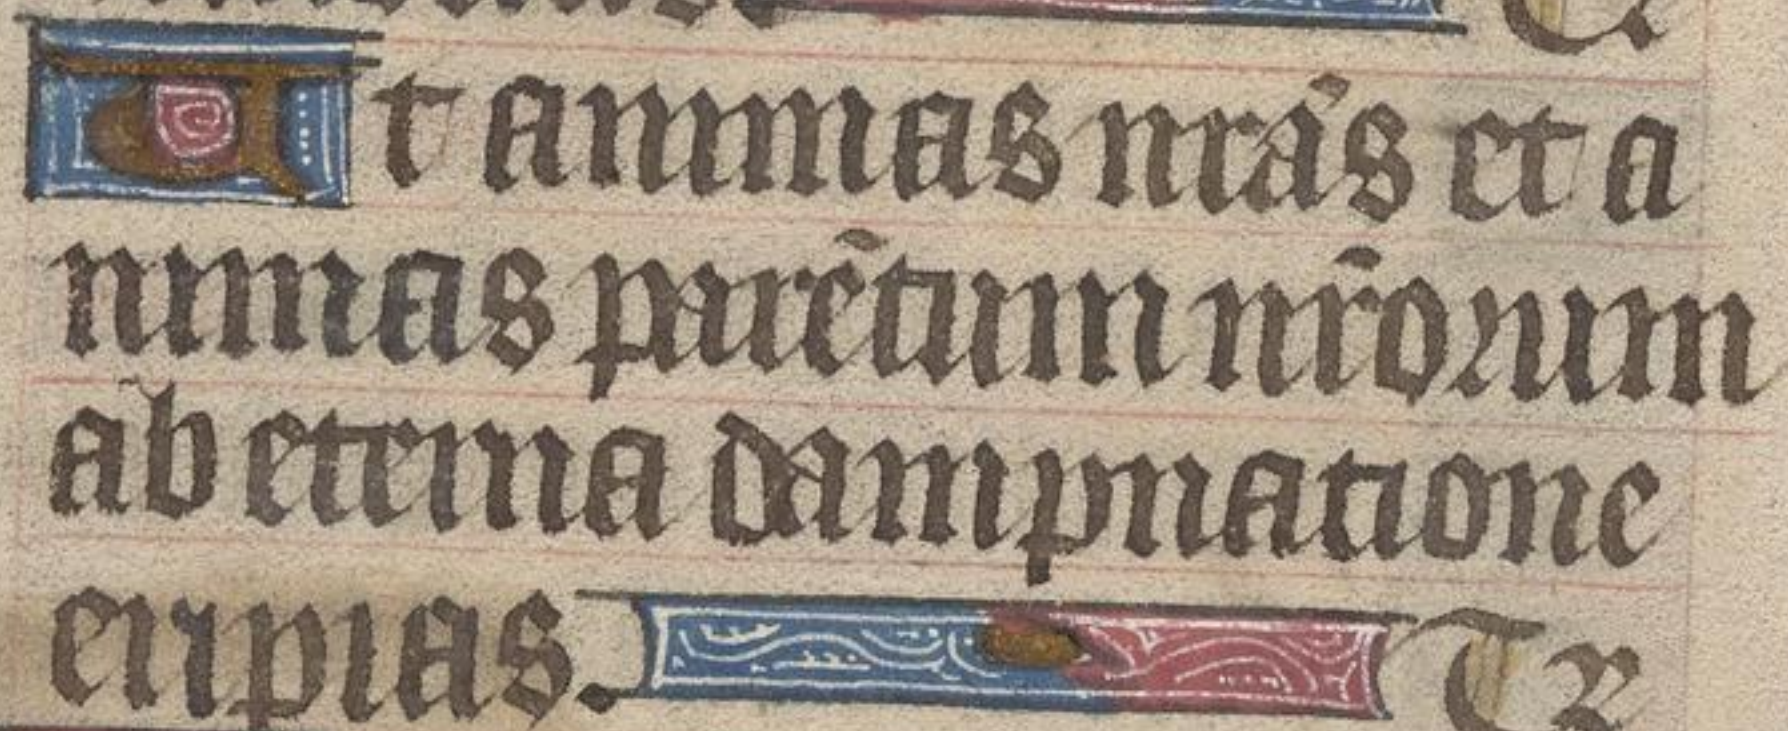 Ut animas nrās et a
nimas parētum nr̄orum
ab eterna dampnatione
eripias. T R